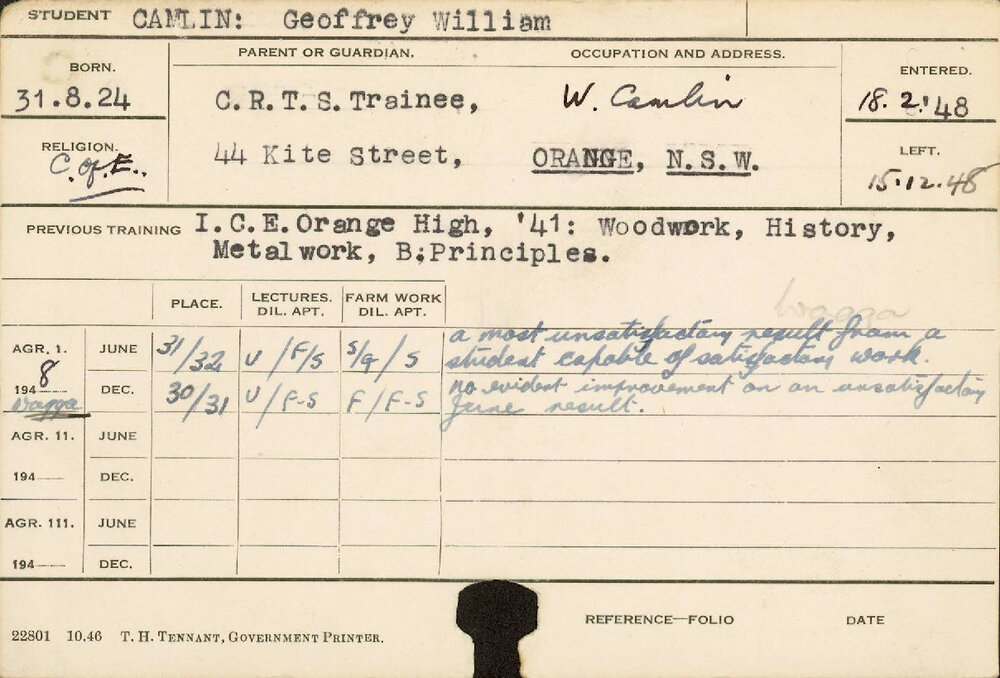 STUDENT CAMLIN: Geoffrey William
PARENT OR GUARDIAN. OCCUPATION AND ADDRESS.
BORN. ENTERED.
31.8.24 C.R.T.S.Trainee, W. Camlin 18.2.'48
RELIGION. LEFT.
C.of.E.. 44 Kite Street, ORANGE, N.S.W. 15.12.48
PREVIOUS TRAINING I.C.E.Orange High, '41: Woodwork, History,
Metalwork, B;Principles.
Wagga
PLACE. LECTURES. DIL. APT. FARM WORK DIL. APT.
AGR. 1. JUNE 31/32 U/F/S S/G/S a most unsatisfactory result from a
student capable of satisfactory work.
1948 DEC. 30/31 U/F-S F/F-S no evident improvement on an unsatisfactory
Wagga June result.
AGR. 11. JUNE
194 DEC.
AGR. 111. JUNE
194 DEC.
REFERENCE—FOLIO DATE
22801 10.46 T. H. TENNANT, GOVERNMENT PRINTER.